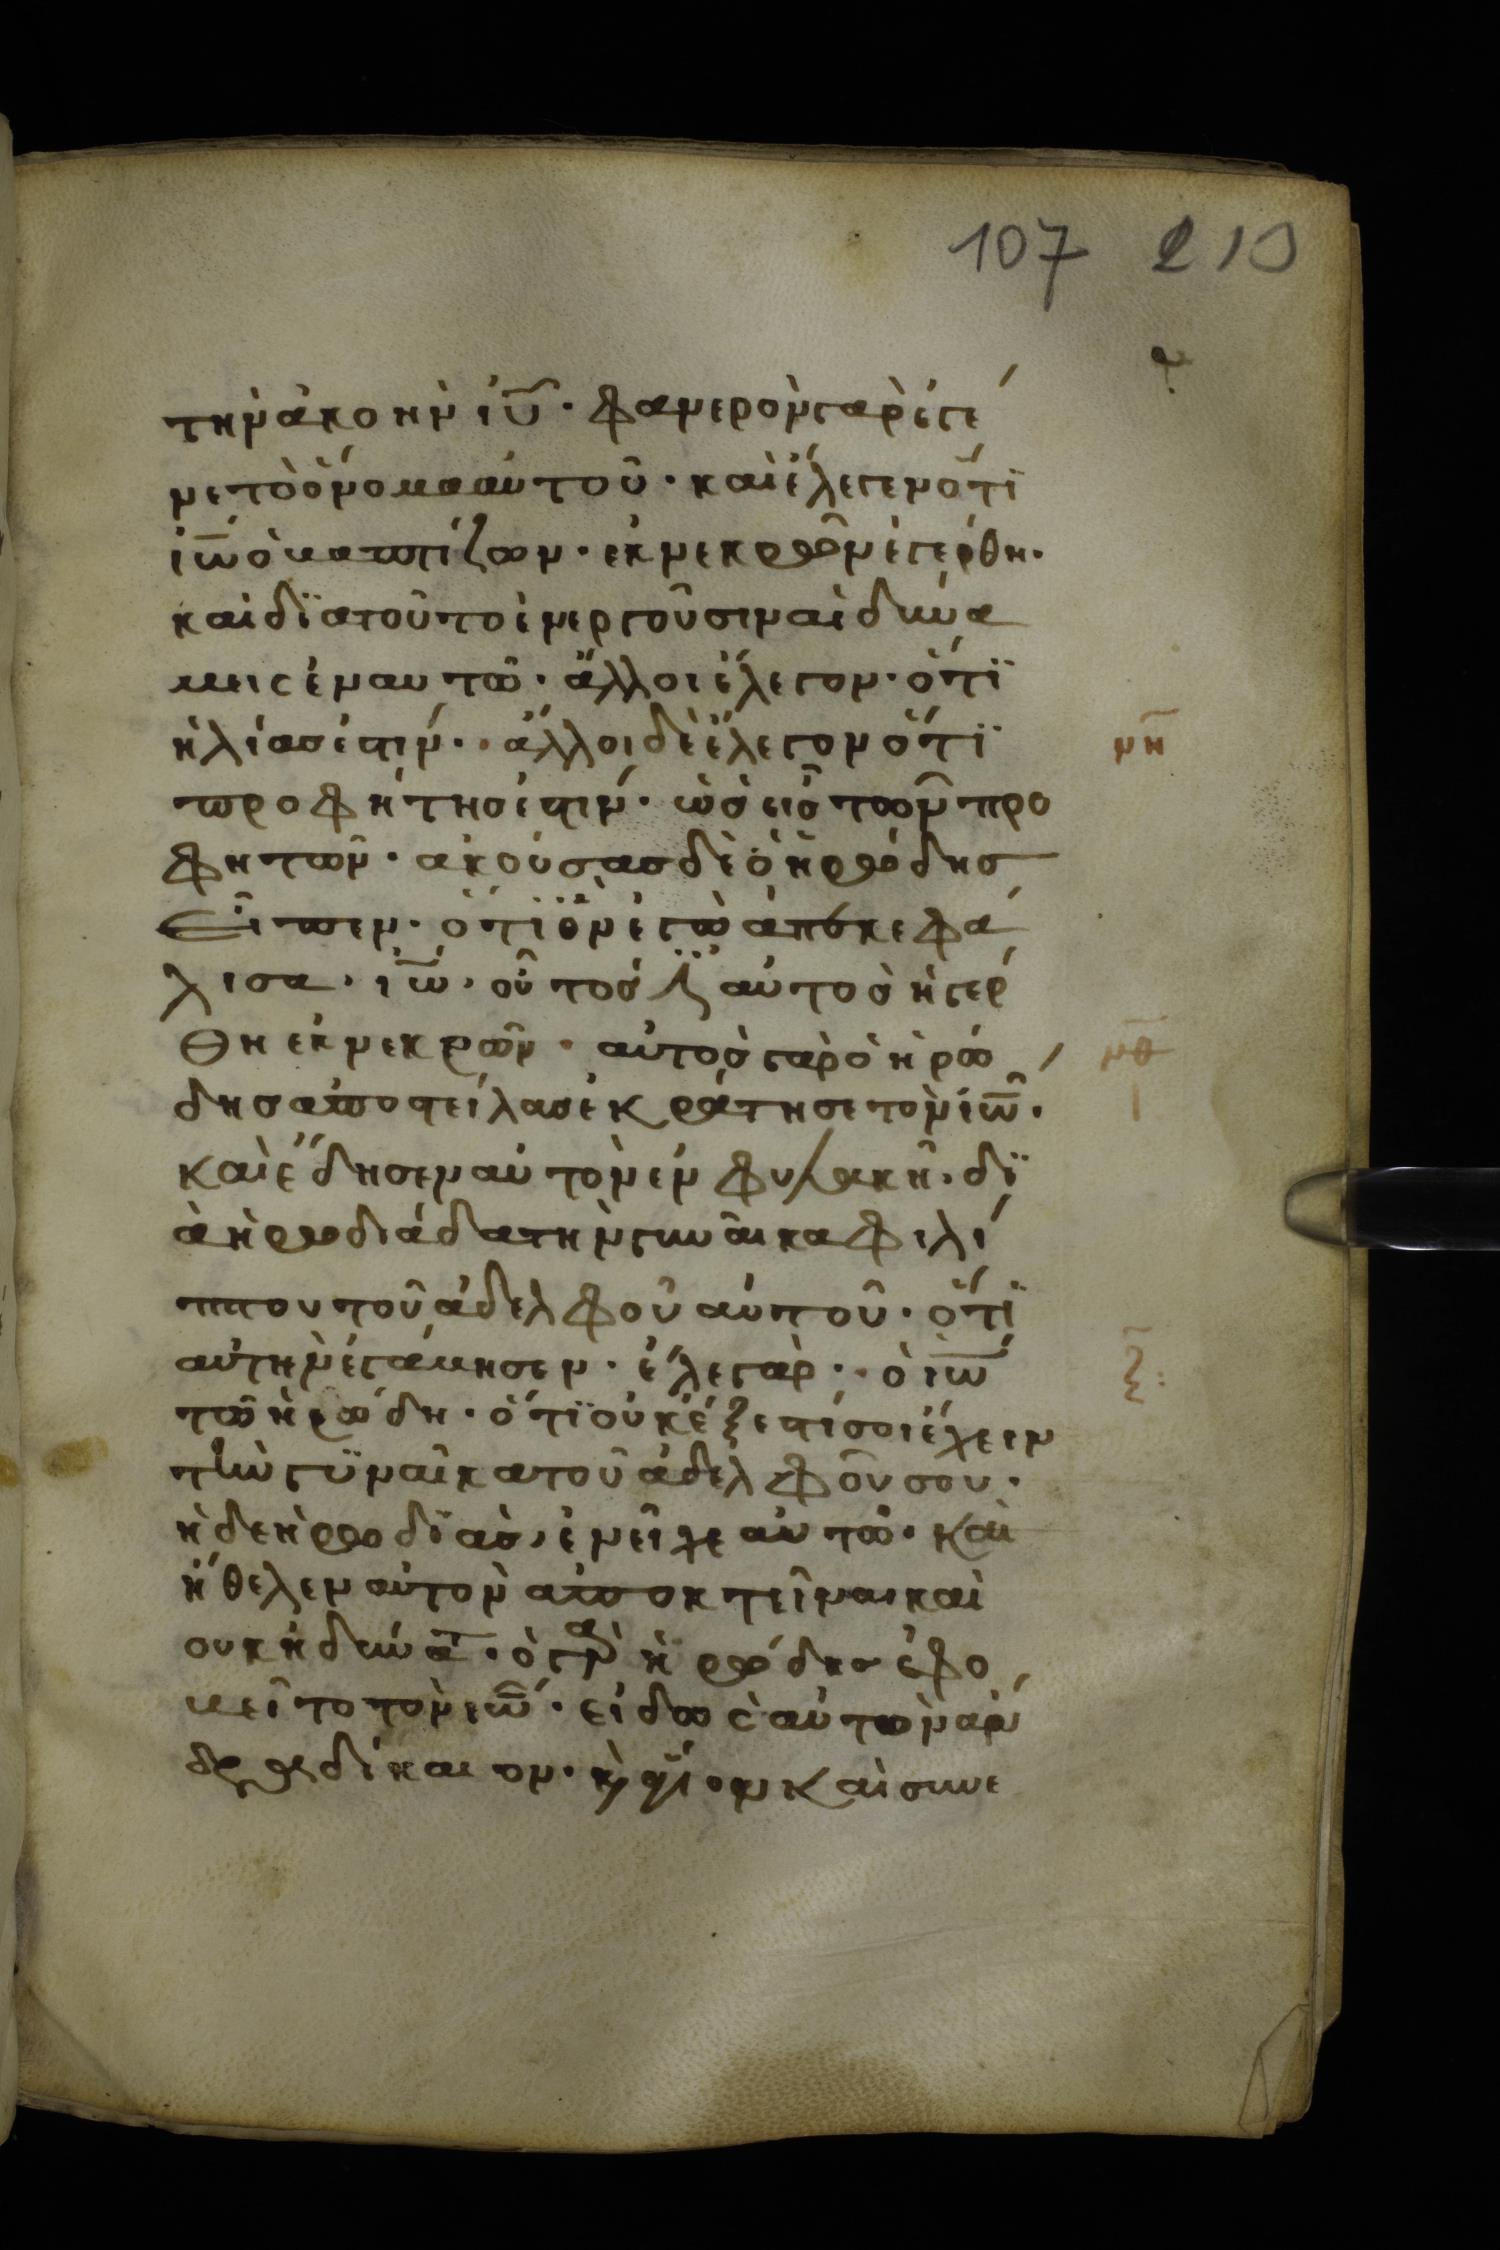 107 210
τὴν ἀκοὴν ιυ · φανερὸν γὰρ ἐγέ
νετὸ ὄνομα αὐτοῦ · καὶ ἔλεγεν ὅτϊ
ιω ὁ βαπτίζων · ἐκ νεκρῶν ἐγέρθη ·
καὶ δϊατοῦτο ἐνεργοῦσιν αἱ δυνά
μεις ἐν αυτῶ · ἄλλοι ἔλεγον · ὅτϊ
ἠλίασ ἐστιν · ἄλλοι δὲ ἔλεγον ὅτϊ
μη
προφήτησ ἐστιν · ὡσ εἷσ τῶν προ
φητῶν · ακούσασ δὲ ὁ ἡρώδησ
εἶπεν · ὅτϊ ὃν ἐγὼ ἀπεκεφά
λισα · ιω · οὗτοσ ἐστϊν αὐτοσ ἠγέρ
θη ἐκ νεκρῶν · αὐτοσ γαρ ὁ ἡρώ
μθ
δησ αποστείλασ ἐκράτησε τὸν ιω ·
καὶ ἔδησεν αὐτὸν ἐν φυλακῆ · δϊ
ὰ ἡρωδιάδα τὴν γυναῖκα φιλί
ππου τοῦ ἀδελφοῦ αὐτοῦ · ὅτϊ
αὐτὴν ἐγάμησεν · ἔλεγαρ · ὁ ιω
ξ
τῶ ἡρώδη · ὅτϊ οὐκ ἔξεστί σοι ἔχειν
τὴν γϋναῖκα τοῦ ἀδελφοῦ σου ·
ἡ δε ἡρωδϊὰσ, ἐνεῖχε αὐτῶ · καὶ
ἤθελεν αὐτὸν αποκτεῖναι καὶ
ουκ ἠδύνατο · ὁ γαρ ἡρώδησ ἐφο
βεῖτο τὸν ιω · εἰδὼς αὐτὼν ἄν
δρα δίκαιον · κὶ ἅγϊον καὶ συνε